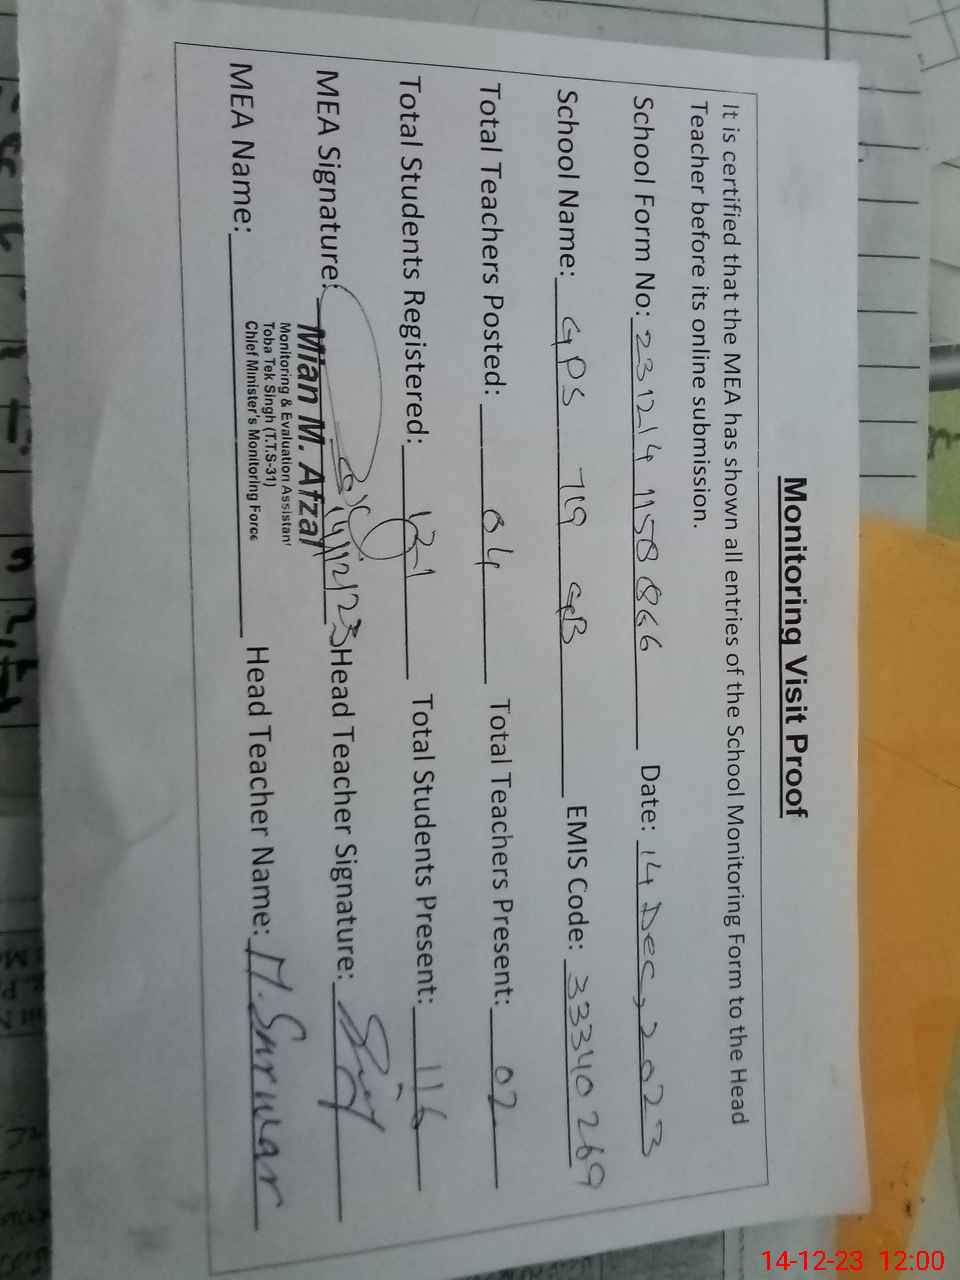 Monitoring Visit Proof
It is certified that the MEA has shown all entries of the School Monitoring Form to the Head
Teacher before its online submission.
School Form No: 231214 1158866 Date: 14 Dec, 2023
School Name: GPS 719 GB EMIS Code: 33340269
Total Teachers Posted: 04 Total Teachers Present: 02
Total Students Registered: 121 Total Students Present: 116
MEA Signature: 14/12/23 Head Teacher Signature:
Mian M. Afzal
Monitoring & Evaluation Assistant
Toba Tek Singh (T.T.S-31)
Chief Minister's Monitoring Force
MEA Name: Head Teacher Name: M. Sarwar
14-12-23 12:00